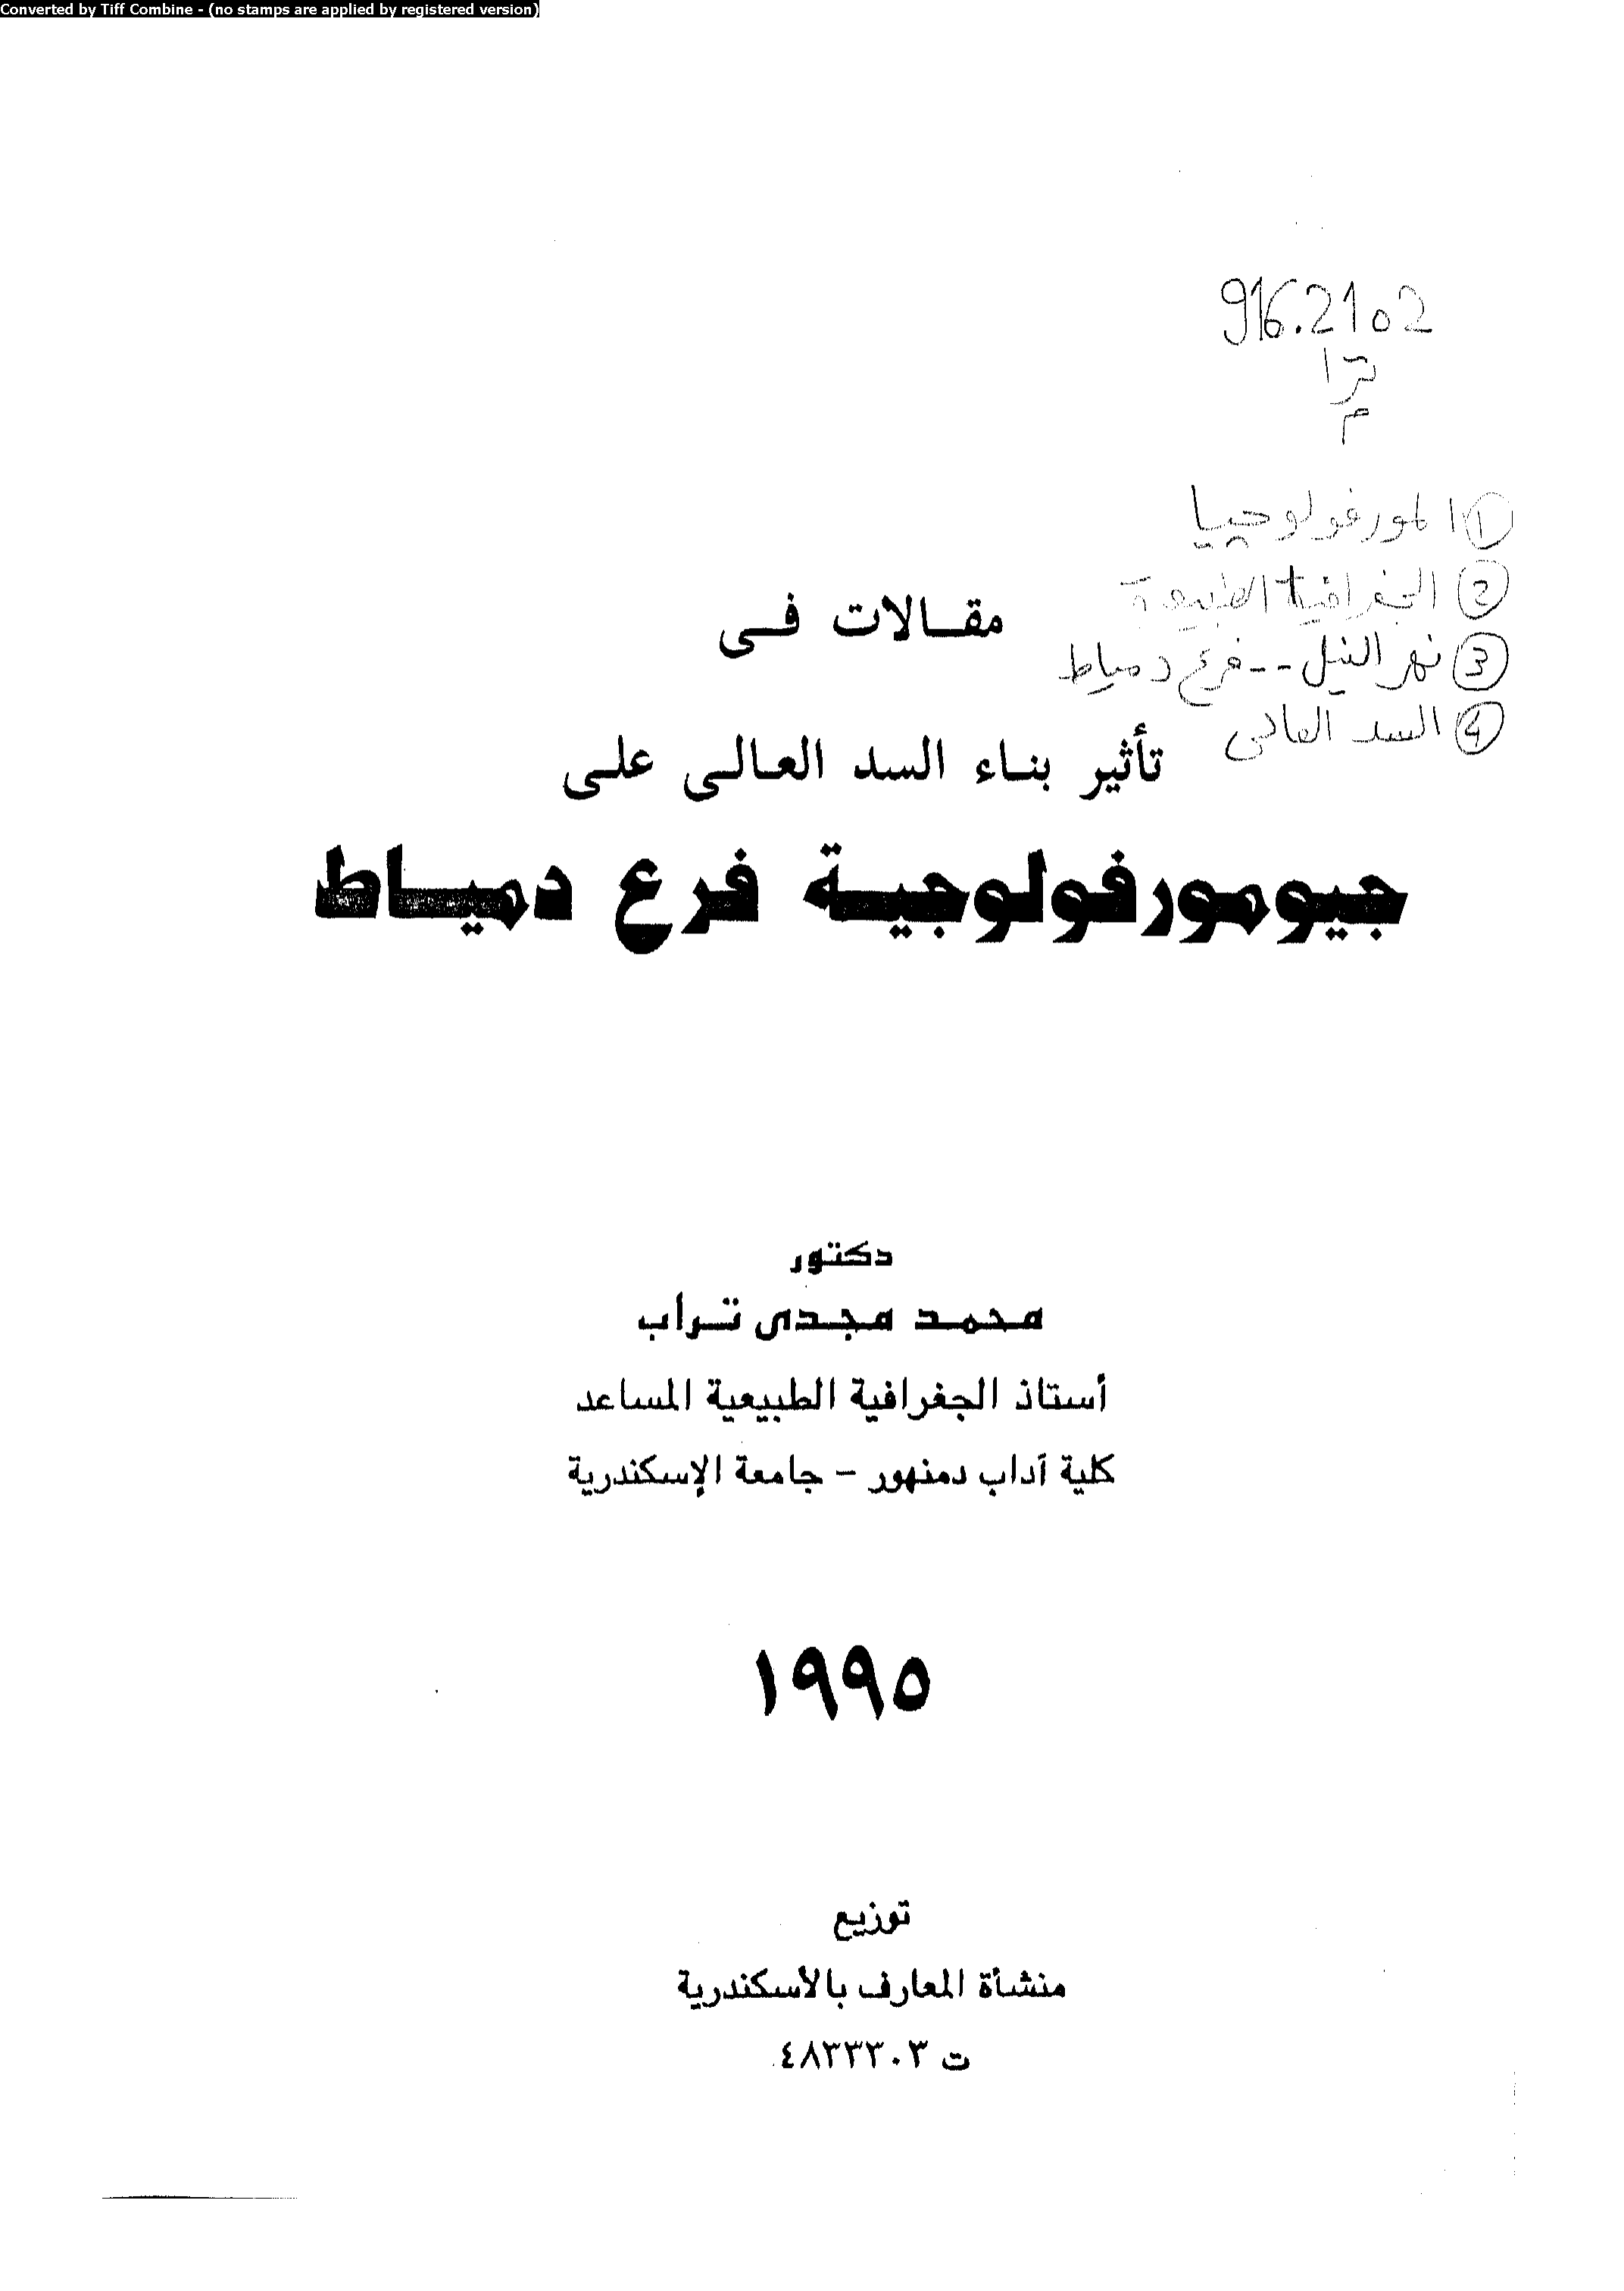 Converted by Tiff Combine - (no stamps are applied by registered version)
916.2102
ترا
م
① المورفولوجيا
② الجغرافية الطبيعية
③ نهر النيل -- فرع دمياط
④ السد العالى
مقالات فى
تأثير بناء السد العالى على
جيومورفولوجية فرع دمياط
دكتور
محمد مجدى تراب
أستاذ الجغرافية الطبيعية المساعد
كلية آداب دمنهور - جامعة الإسكندرية
١٩٩٥
توزيع
منشأة المعارف بالأسكندرية
ت ٤٨٣٣٣٠٣